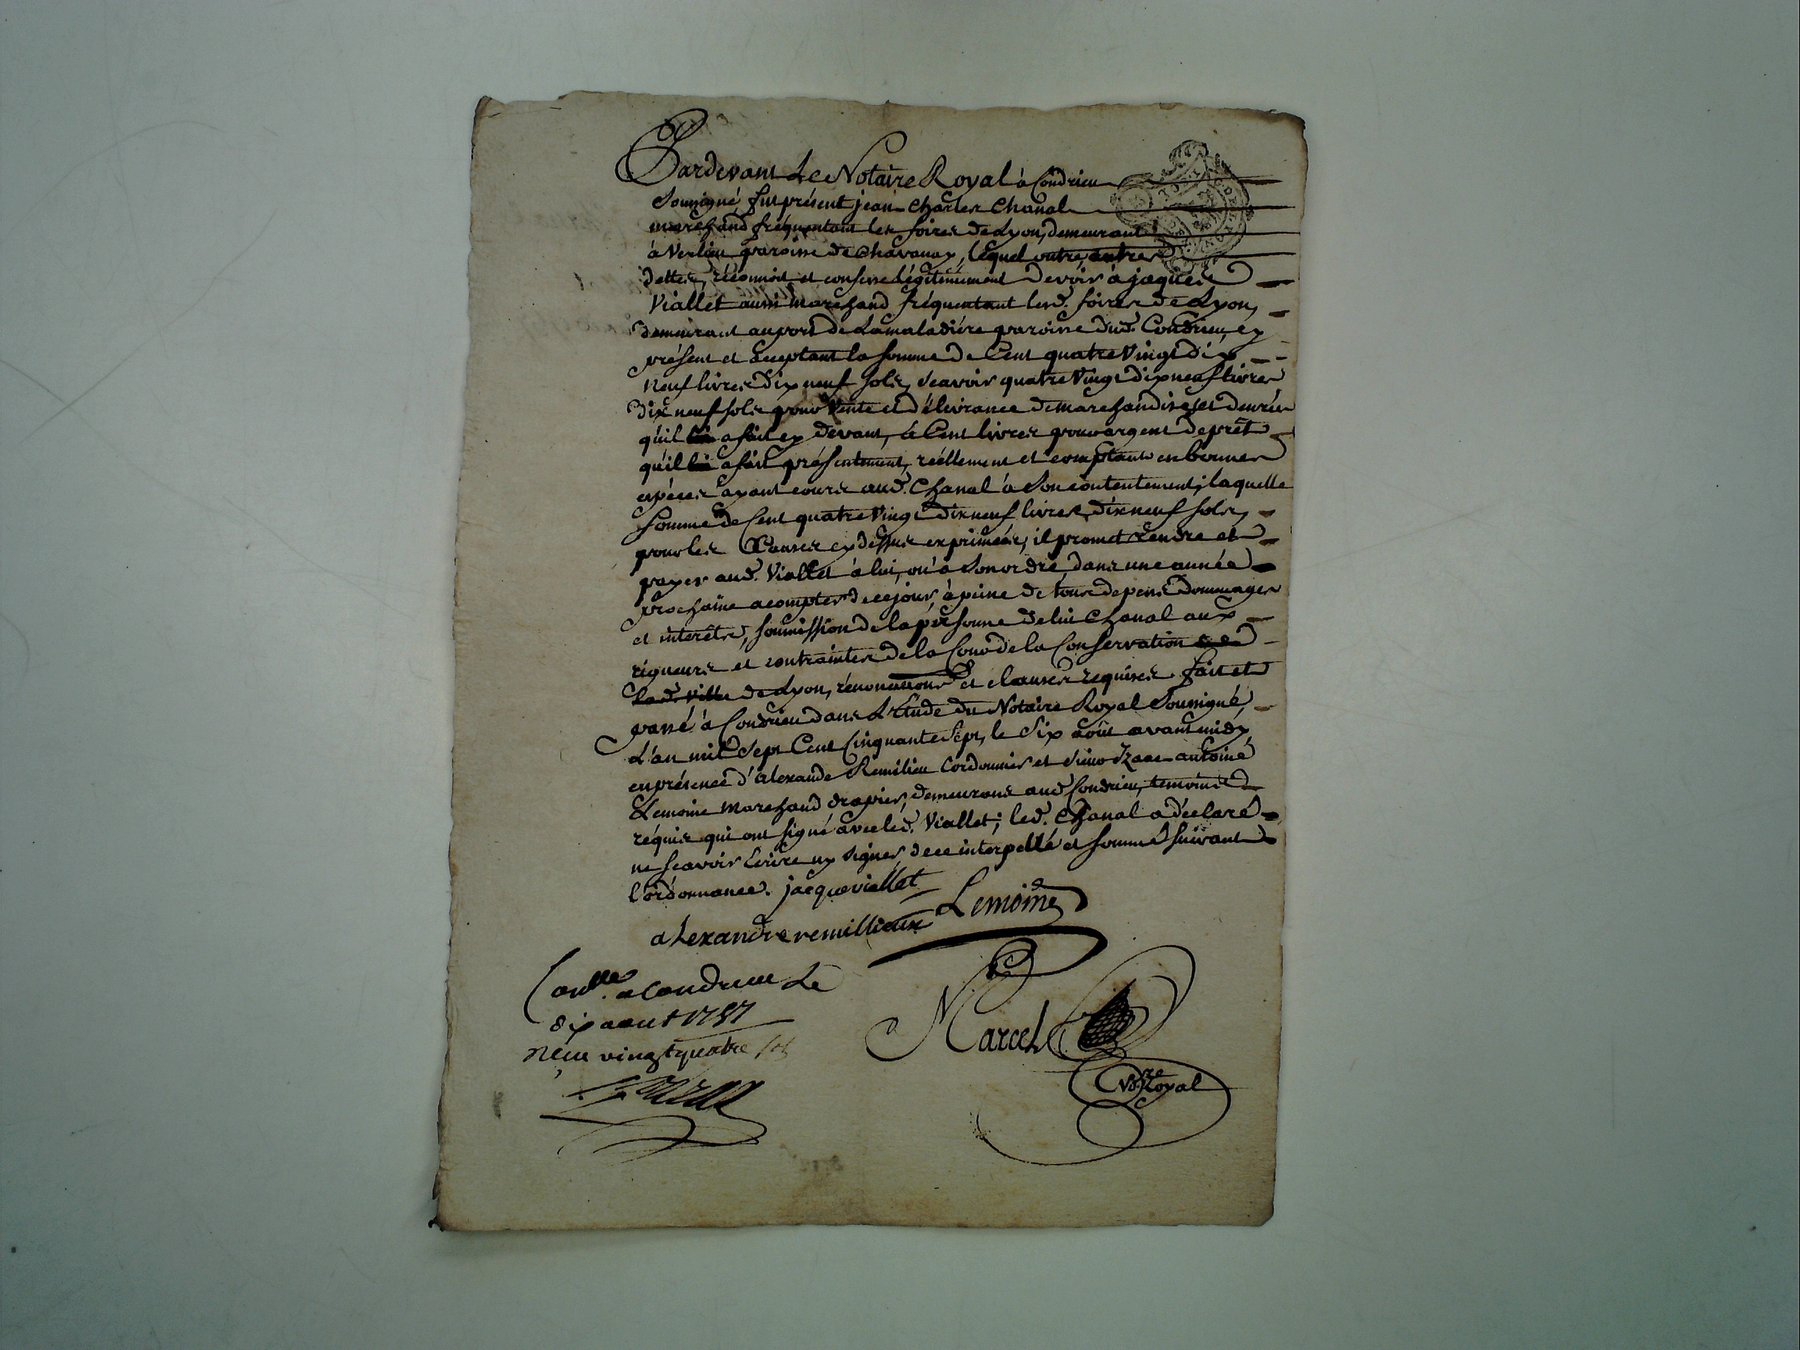 Pardevant Le Notaire Royal à Condrieu
Soussigné fut présent jean Charles Chanal
marchand fréquentant les foires de Lyon, demeurant
à Verlieu paroisse de Chavanay, lequel outre autres
dettes, réconnoit et confesse légitimement devoir à jacques
Viallet aussi marchand fréquentant lesd. foires de Lyon,
demeurant au port de Lamaladiére paroisse dud. Condrieu, cy
présent et acceptant la somme de Cent quatre Vingt dix
neuf livres dix neuf sols, sçavoir quatre Vingt dix neuf livres
dix neuf sols pour Vente et délivrance de marchandises et denrées
qu'il a fait cy devant, & Cent livres pour argent de prêt
qu'il a fait présentement, réellement et comptant en bonnes
espéces ayant cours aud. Chanal à Son contentement; laquelle
Somme de Cent quatre Vingt dix neuf livres, dix neuf sols,
pour les Causes cy dessus exprimées, il promet rendre et
payer aud. Viallet à lui, ou à Son ordre, dans une année
prochaine a compter de ce jour, à peine de tous depens dommages
et interêts, soumission de la personne de lui Chanal aux
rigueurs et contraintes de la Cour de la Conservation
de Lyon, rénonciations et clauses requises. fait et
passé à Condrieu dans L'Etude du Notaire Royal Soussigné,
L'an mil Sept Cent Cinquante Sept, le Six août avant midy,
en présence d'alexandre Remilieu Cordonnier et Sieur Izaac antoine
Lemoine marchand drapier, demeurans aud. Condrieu, temoins
réquis qui ont signé avec led. Viallet; led. Chanal a déclaré
ne sçavoir Ecrire ny signer, de ce interpellé et sommé suivant
l'ordonnance. jacque viallet
Lemoine
alexandre remillieux
Con.lle a condrieu Le
six aout 1757
Reçu vingt quatre sols
Marcel
No.re Royal